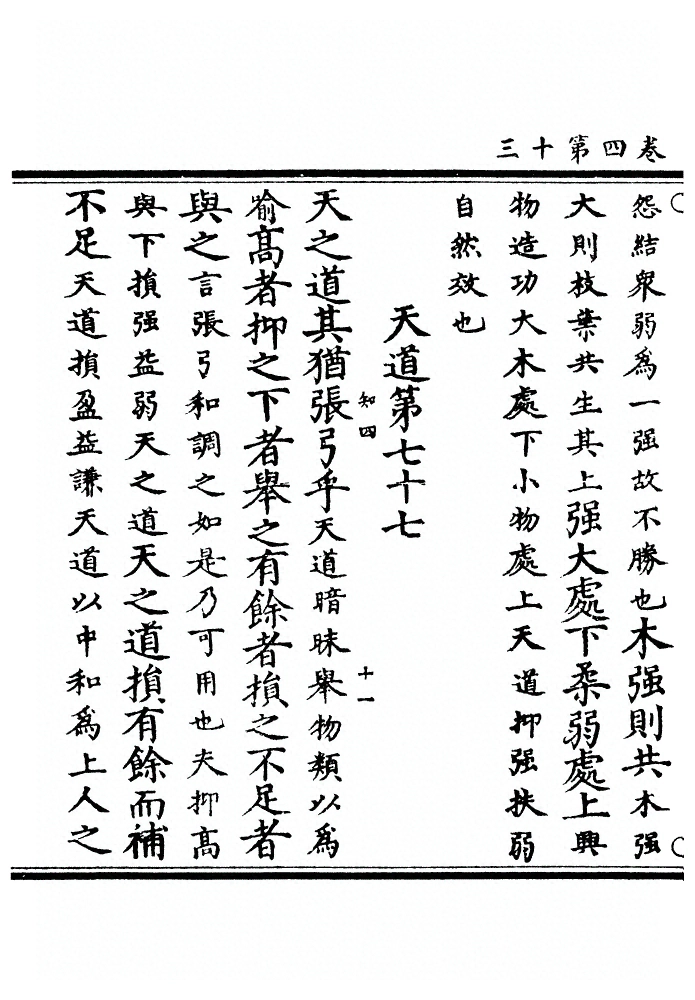 卷四第十三
怨結衆弱爲一强故不勝也木强則共木强
大則枝葉共生其上强大處下柔弱處上興
物造功大木處下小物處上天道抑强扶弱
自然效也
天道第七十七
知四
十一
天之道其猶張弓乎天道暗昧舉物類以爲
喻高者抑之下者舉之有餘者損之不足者
與之言張弓和調之如是乃可用也夫抑高
與下損强益弱天之道天之道損有餘而補
不足天道損盈益謙天道以中和爲上人之